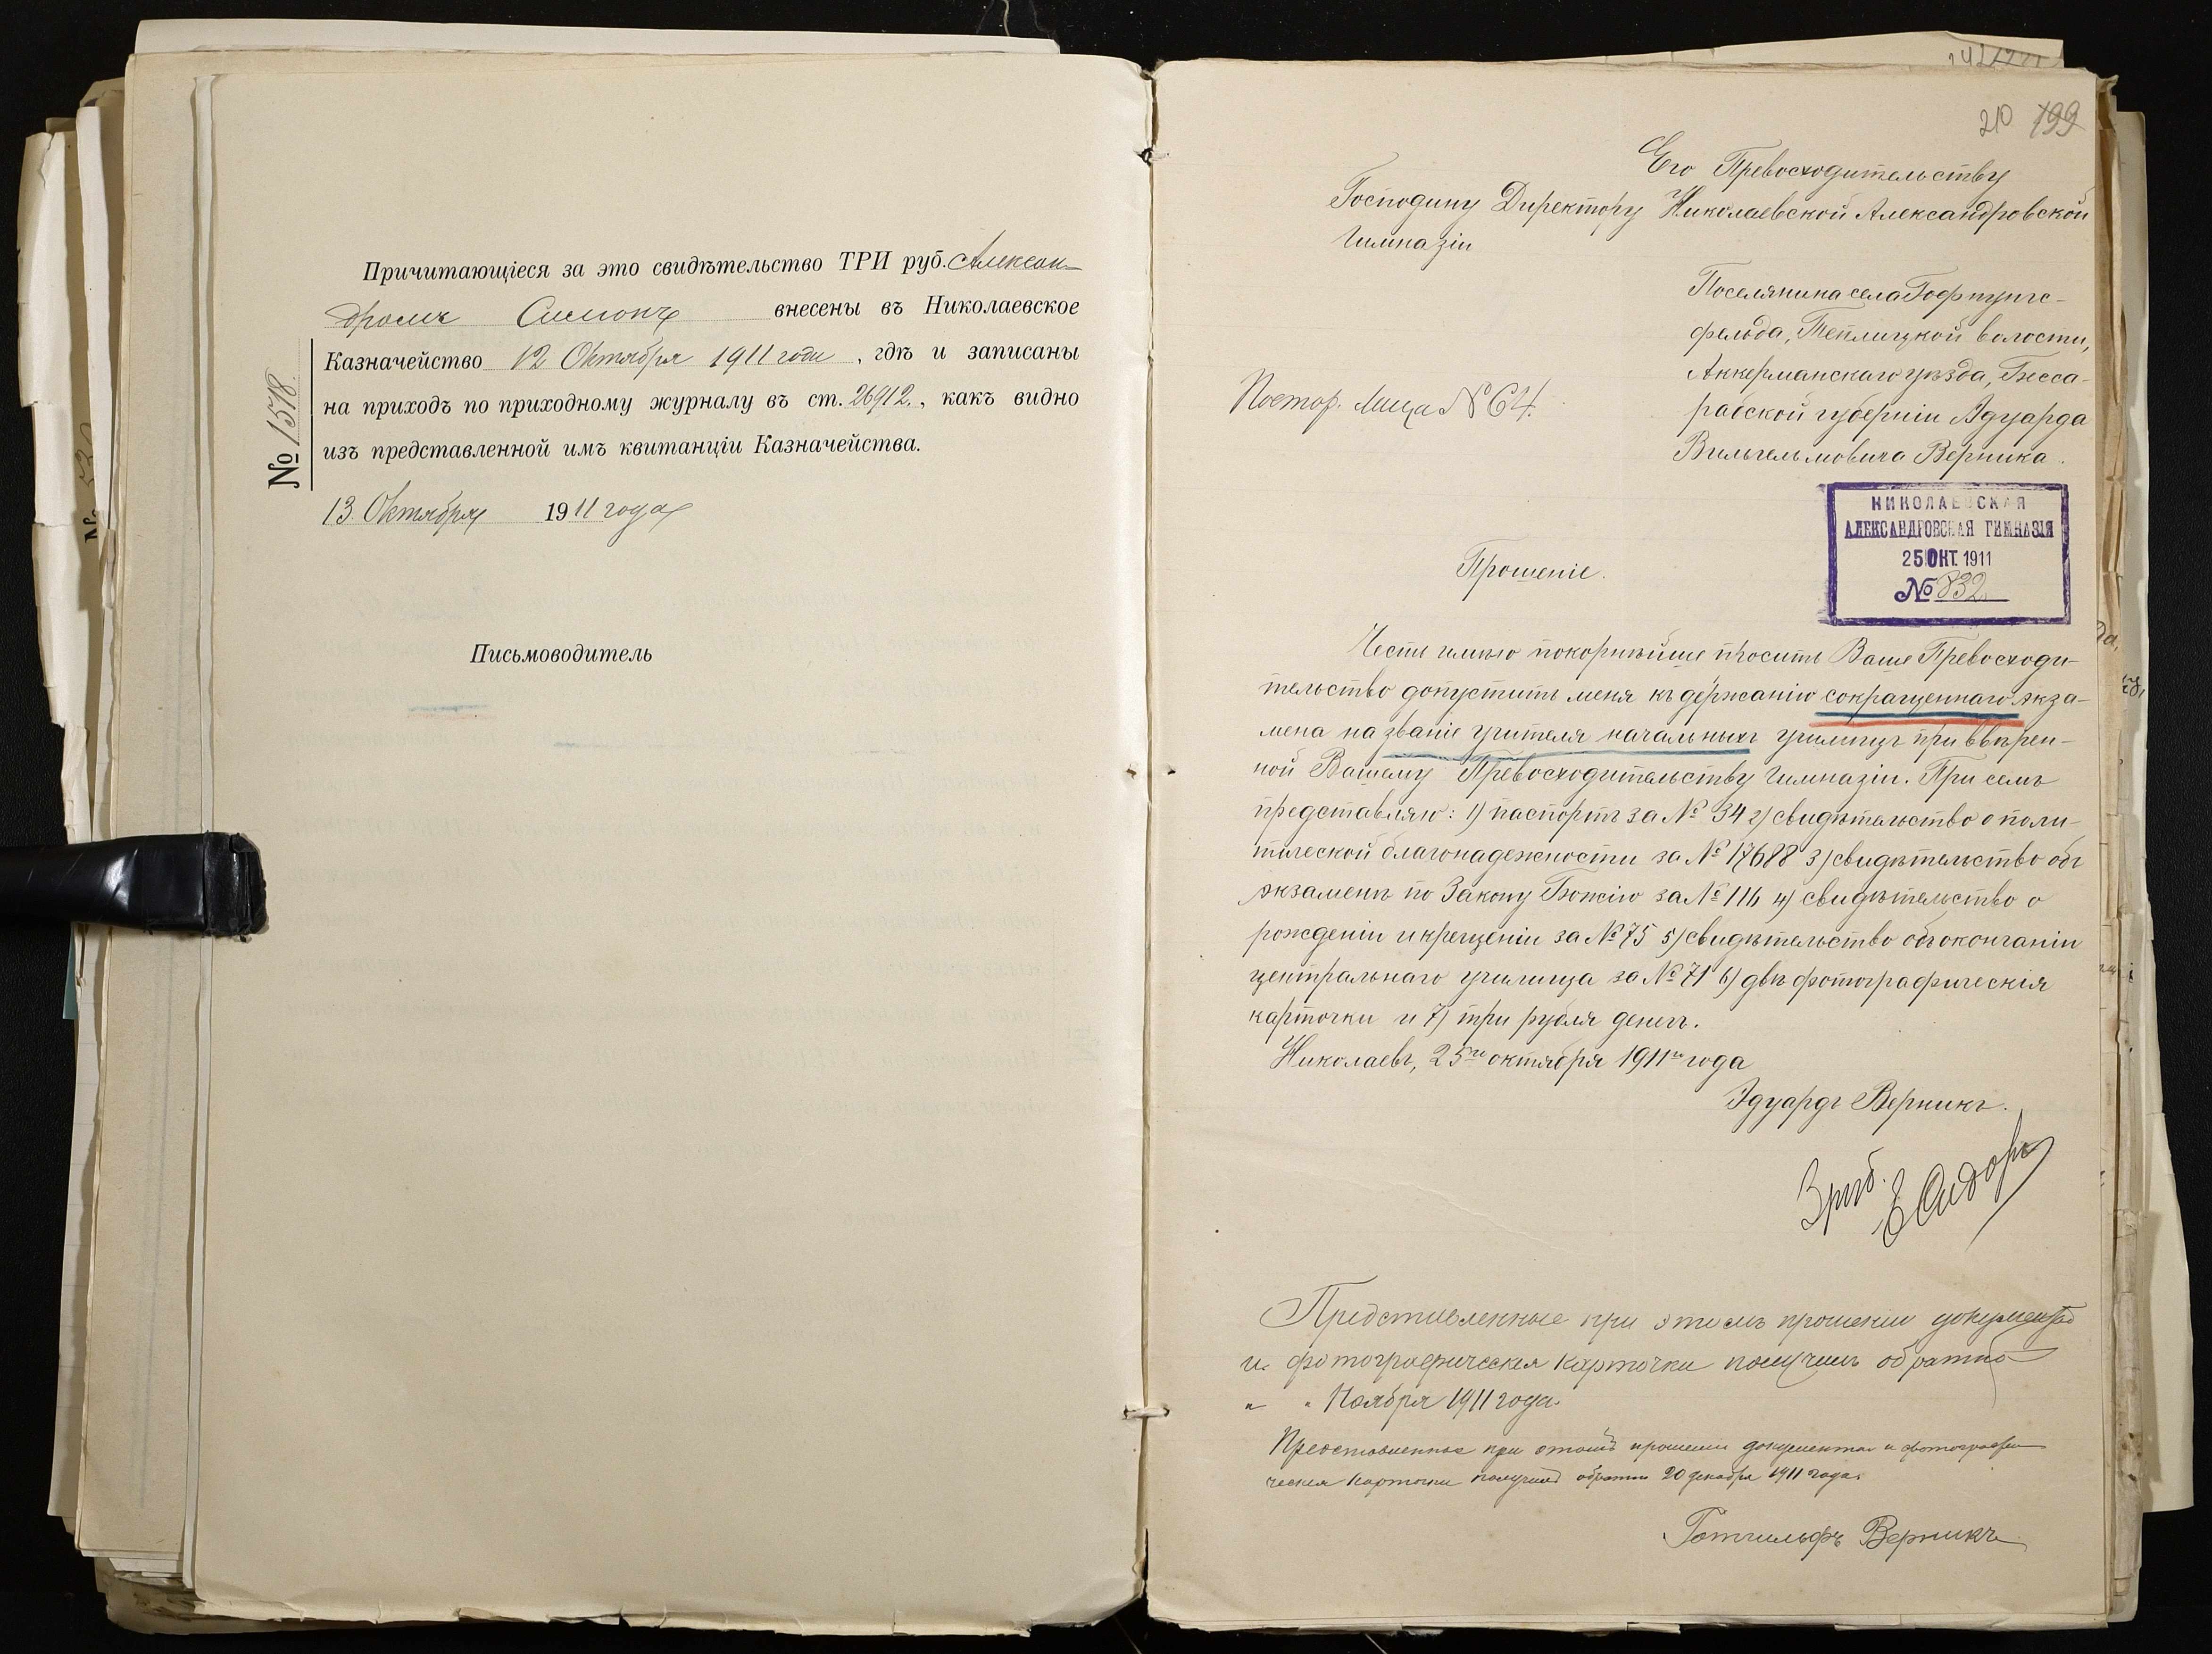 Причитающіеся за это свидѣтельство ТРИ руб. Алексан-
дромъ Симонъ внесены въ Николаевское
Казначейство 12 Октября 1911 года, гдѣ и записаны
на приходъ по приходному журналу въ ст. 26912., какъ видно
изъ представленной имъ квитанціи Казначейства.
№ 1578.
13 Октября 1911 года
Письмоводитель
210 199
Его Превосходительству
Господину Директору Николаевской Александровской
Гимназіи
Поселянина села Гофнунгс-
фельда, Теплицкой волости,
Аккерманскаго уѣзда, Бесса-
рабской губерніи Эдуарда
Вильгельмовича Верника.
Постор. лица № 64.
НИКОЛАЕВСКАЯ
АЛЕКСАНДРОВСКАЯ ГИМНАЗІЯ
25 ОКТ. 1911
№ 832
Прошеніе.
Честь имѣю покорнѣйше просить Ваше Превосходи-
тельство допустить меня къ держанію сокращеннаго экза-
мена на званіе учителя начальныхъ училищъ при ввѣрен-
ной Вашему Превосходительству Гимназіи. При семъ
представляю: 1) паспортъ за № 34 2) свидѣтельство о поли-
тической благонадежности за № 17688 3) свидѣтельство объ
экзаменѣ по Закону Божію за № 116 4) свидѣтельство о
рожденіи и крещеніи за № 75 5) свидѣтельство объ окончаніи
центральнаго училища за № 71 6) двѣ фотографическія
карточки и 7) три рубля денегъ.
Николаевъ, 25го октября 1911го года
Эдуардъ Верникъ.
Представленные при этомъ прошеніи документы
и фотографическія карточки получилъ обратно
" " Ноября 1911 года.
Представленные при этомъ прошеніи документы и фотографи-
ческія карточки получилъ обратно 20 декабря 1911 года.
Готгильфъ Верникъ